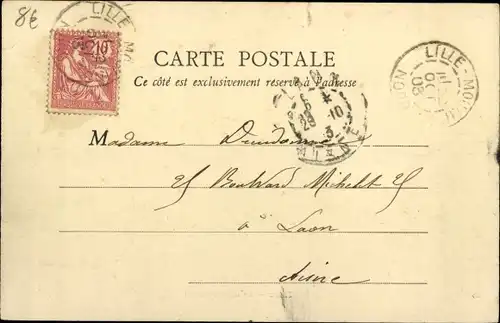 8€
LILLE-MO
10
CARTE POSTALE
Ce côté est exclusivement réservé à l'adresse
LILLE-MO
OCT
03
LAON
5
29 -10
3
AISNE
Madame
25 Boulevard Michelet 25
à Laon
Aisne